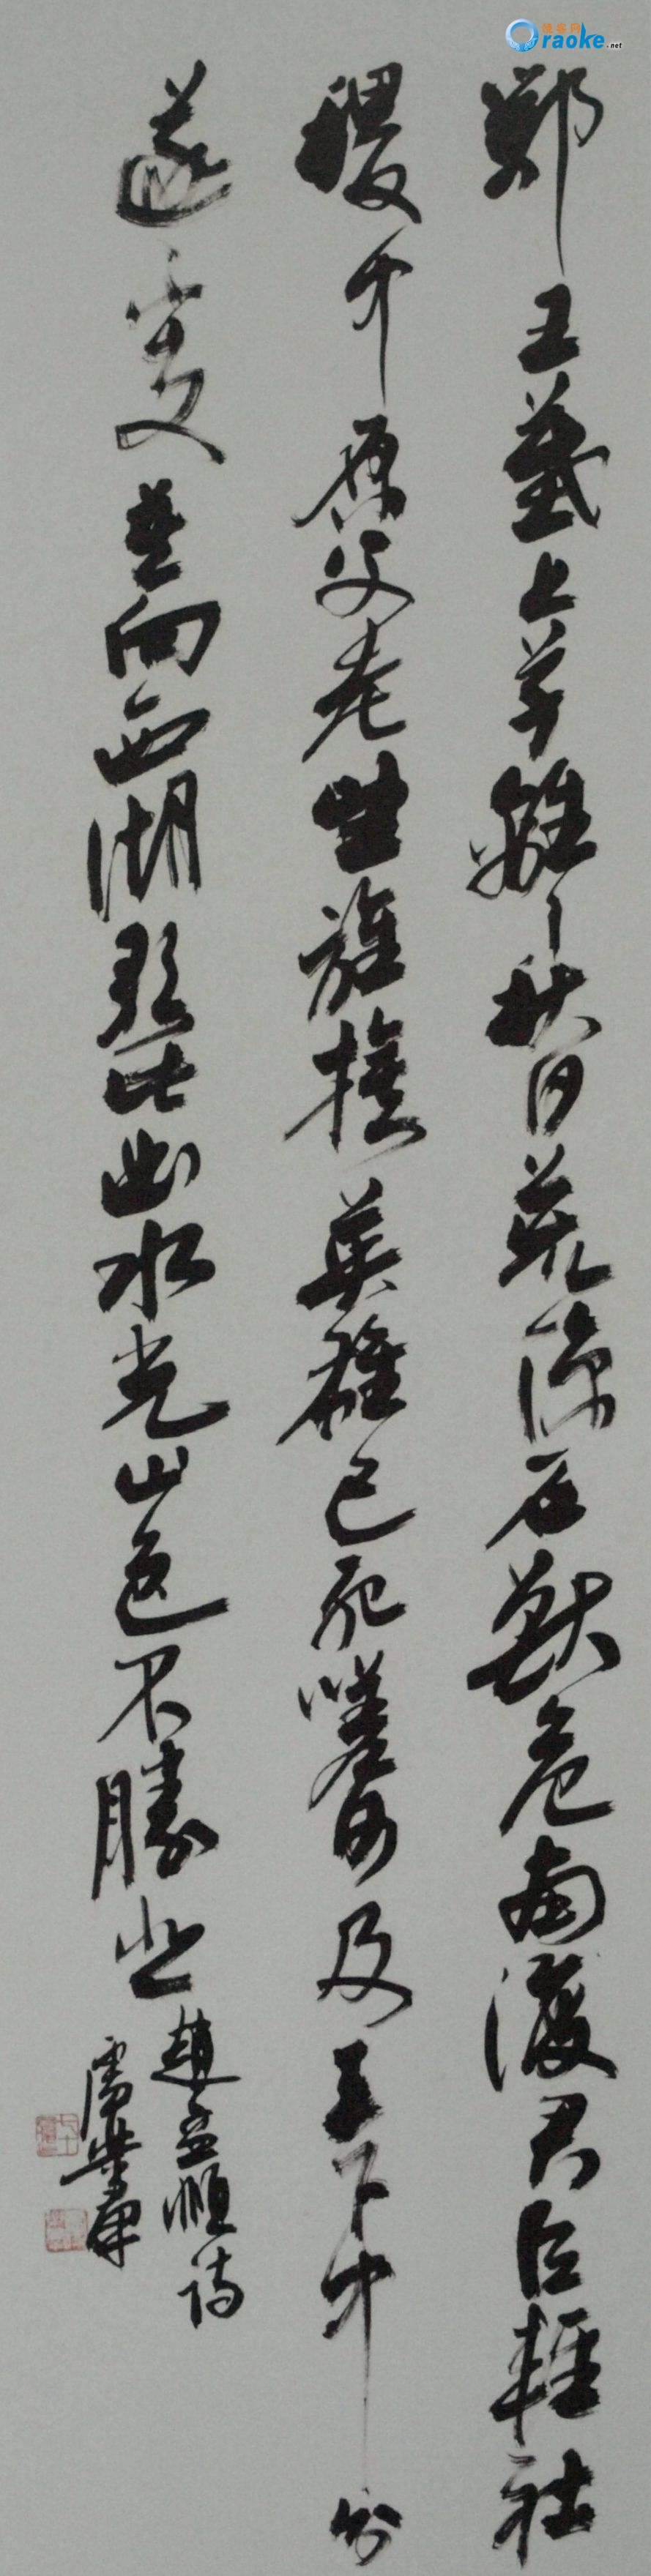 Oraoke.net
鄂王上草離離秋日荒涼石獸危南渡君臣輕社
稷中原父老望旌旗英雄已死嗟何及天下中分
遂不支莫向西湖歌此曲水光山色不勝悲
趙孟頫詩